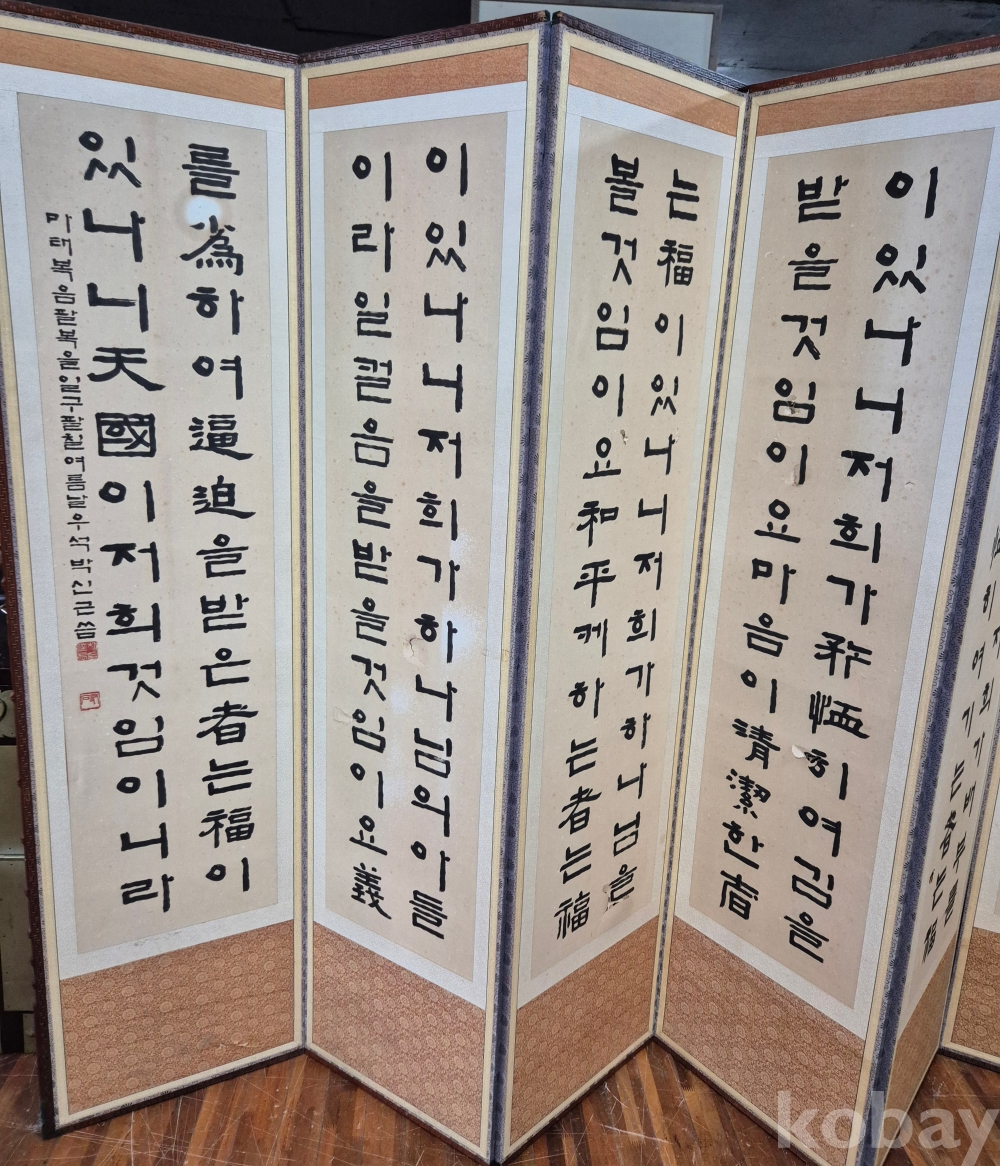 희가배부를
히여기는者는福
이있나니저희가矜恤히여김을
받을것임이요마음이清潔한者
는福이있나니저희가하나님을
볼것임이요和平케하는者는福
이있나니저희가하나님의아들
이라일컬음을받을것임이요義
를為하여逼迫을받은者는福이
있나니天國이저희것임이니라
마태복음팔복을일구팔칠여름날우석박신근씀
kobay